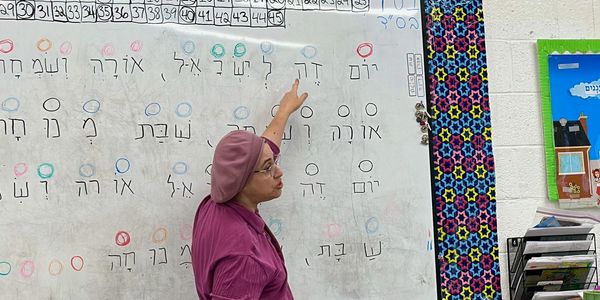 29 30 31 32 33 34 35 36 37 38 39 40 41 42 43 44 45
בס"ד
יוֹם זֶה לְ יִשְׂ רָ אֵ-ל, אוֹרָה וְשִׂמְ חָ
אוֹרָה וְשִׂ שַׁבַּת מְ נוּ חָ
יוֹם זֶה אֵ-ל אוֹרָה וְשִׂ
שַׁבַּת, מְ נוּ חָה